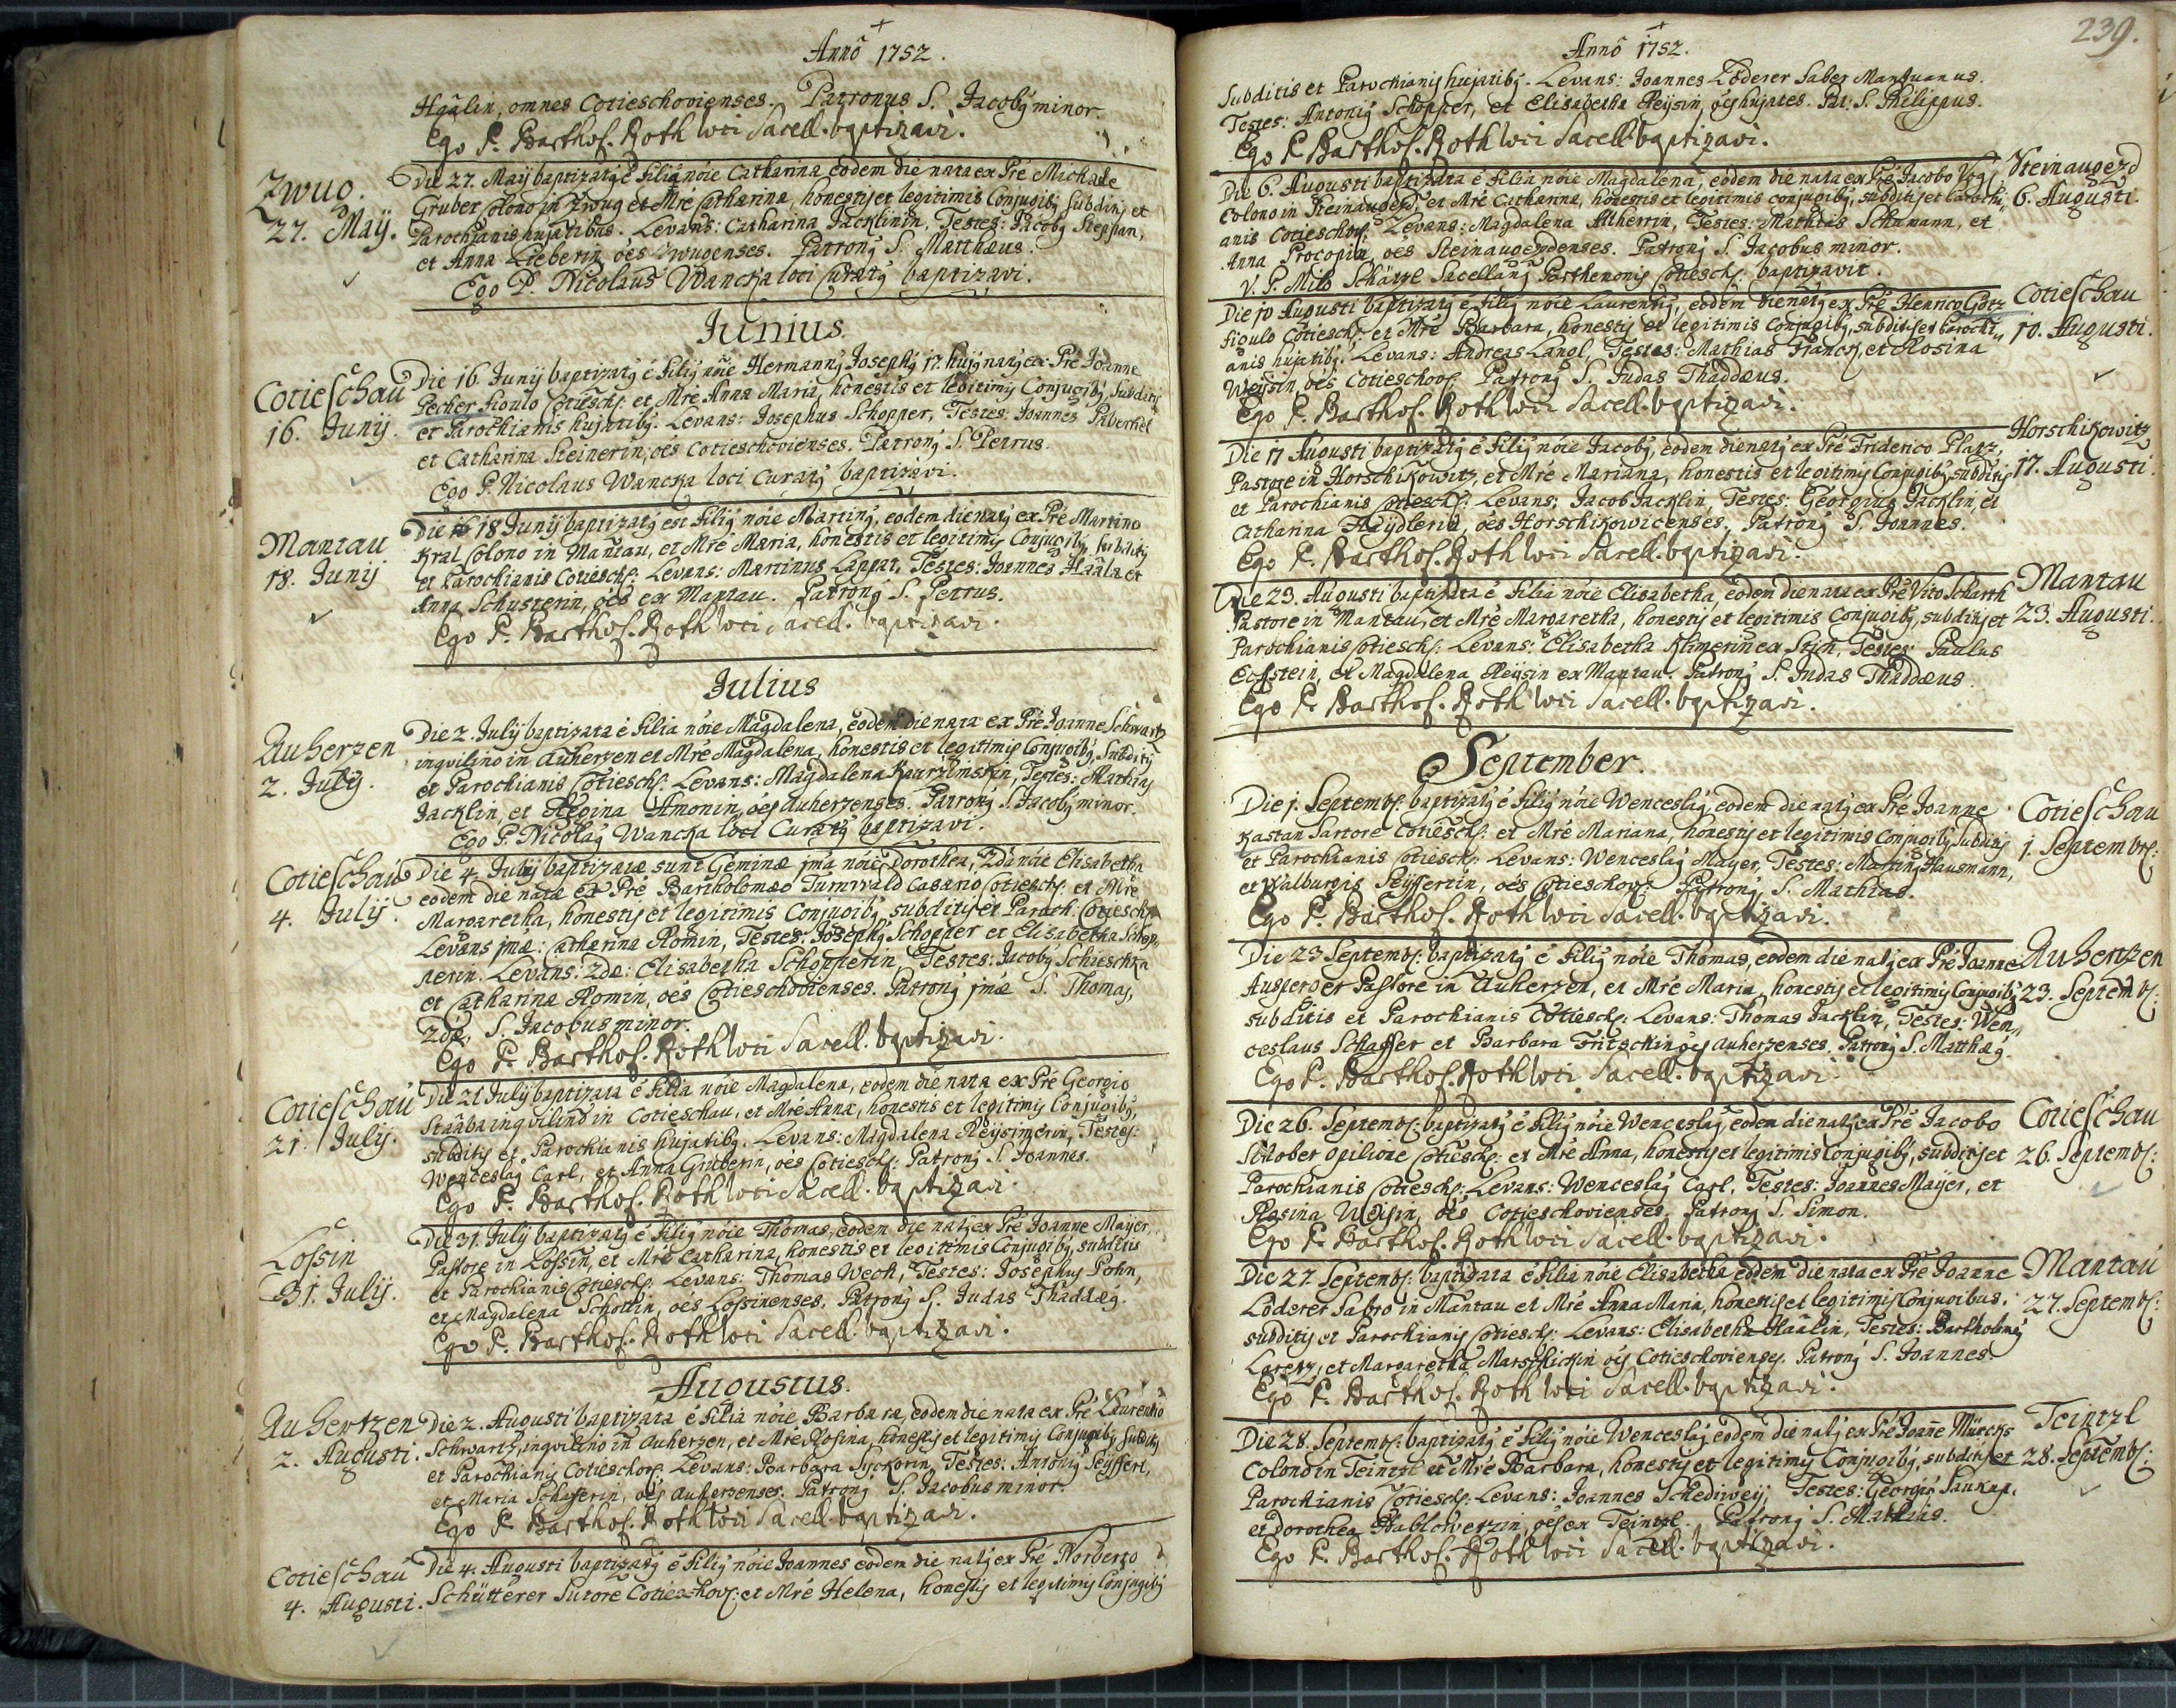 Anno 1752.
Haalin, omnes Cotieschovienses. Patronus S. Jacoby minor.
Ego P. Barthol. Roth loci Sacell. baptizavi.
Zwuo.
27. Maij.
Die 27. Maij baptizata é filia nóie Catharina eodem die nata ex Pré Michaele
Gruber Colono in Zwug et Mré Catharina, honestis et legitimis Conjugibg subditis et
Parochianis hujatibus. Levans: Catharina Jacklinin, Testes: Jacobg Stephan,
et Anna Lieberin, óes Zwugenses. Patrong S. Matthæus.
Ego P. Nicolaus Wancka loci Curatg baptizavi.
Junius.
Cotieschau
16. Junij.
Die 16. Junij baptizatg é filig nóie Hermanng Josephg 17. hujg natg ex Pré Joanne
Pecher figulo Cotiesch: et Mré Anna Maria, honestis et legitimis Conjugibg, Subditis
et Parochianis hujatibg. Levans: Josephus Schopper, Testes: Joannes Piberhel
et Catharina Steinerin, óes Cotieschovienses. Patrong S. Petrus.
Ego P. Nicolaus Wancka loci Curatg baptizavi.
Mantau
18. Junij
Die 18 Junij baptizatg est filig nóie Marting, eodem die natg ex Pré Martino
Kral Colono in Mantau, et Mré Maria, honestis et legitimis Conjugibg, subditis
et Parochianis Cotiesch: Levans: Martinus Lappat, Testes: Joannes Haala et
Anna Schusterin, óes ex Mantau. Patrong S. Petrus.
Ego P. Barthol. Roth loci Sacell. baptizavi.
Julius
Auherzen
2. Julij.
Die 2. Julij baptizata é filia nóie Magdalena, eodem die nata ex Pré Joanne Schwartz
inquilino in Auherzen et Mré Magdalena, honestis et legitimis Conjugibg, Subditis
et Parochianis Cotiesch: Levans: Magdalena Kaurzimskin, Testes: Mathias
Jacklin, et Regina Amonin, óes Auherzenses. Patrong S. Jacobg minor.
Ego P. Nicolag Wancka loci Curatg baptizavi.
Cotieschau
4. Julij.
Die 4. Julij baptizatæ sunt Geminæ 1ma nóie Dorothea, 2da nóie Elisabetha
eodem die natæ ex Pré Bartholomæo Turnwald Casario Cotiesch: et Mré
Margaretha, honestis et legitimis Conjugibg, subditis et Paroch: Cotiesch:
Levans 1mæ: Catharina Romin, Testes: Josephg Schopper et Elisabetha Schop,,
perin. Levans: 2dæ: Elisabetha Schopperin Testes: Jacobg Schieschka
et Catharina Romin, óes Cotieschovienses. Patrong 1mæ S. Thomas,
2dæ S. Jacobus minor.
Ego P. Barthol. Roth loci Sacell. baptizavi.
Cotieschau
21. Julij.
Die 21 Julij baptizata é filia nóie Magdalena, eodem die nata ex Pré Georgio
Staaba inquilino in Cotieschau, et Mré Anna, honestis et legitimis Conjugibg,
subditis et Parochianis hujatibg. Levans: Magdalena Reysingerin, Testes:
Wenceslag Carl, et Anna Gruberin, óes Cotiesch: Patrong S. Joannes.
Ego P. Barthol. Roth loci Sacell. baptizavi.
Lossin
31. Julij.
Die 31. Julij baptizatg é filig nóie Thomas, eodem die natg ex Pré Joanne Mayer
Pastore in Lossin, et Mré Catharina, honestis et legitimis Conjugibg, subditis
et Parochianis Cotiesch: Levans: Thomas Weck, Testes: Josephus Pohn,
et Magdalena Schottin, óes Lossinenses. Patrong S. Judas Thaddæg.
Ego P. Barthol. Roth loci Sacell. baptizavi.
Augustus.
Auhertzen
2. Augusti.
Die 2. Augusti baptizata é filia nóie Barbara, eodem die nata ex Pré Laurentio
Schwartz, inquilino in Auherzen, et Mré Rosina, honestis et legitimis Conjugibg, subditis
et Parochianis Cotieschov: Levans: Barbara Syckorin, Testes: Antonig Seyfferl,
et Maria Schafferin, óes Auherzenses. Patrong S. Jacobus minor.
Ego P. Barthol. Roth loci Sacell. baptizavi.
Cotieschau
4. Augusti.
Die 4. Augusti baptizatg é filig nóie Joannes eodem die natg ex Pré Norberto
Schütterer Sutore Cotieschov: et Mré Helena, honestis et legitimis Conjugibg
239.
Anno 1752.
Subditis et Parochianis hujatibg. Levans: Joannes Löderer Faber Mantuanus.
Testes: Antonig Schopper, et Elisabetha Reysin, óes hujates. Pat: S. Philippus.
Ego P. Barthol. Roth loci Sacell. baptizavi.
Steinaugezd
6. Augusti.
Die 6. Augusti baptizata é filia nóie Magdalena, eodem die nata ex Pré Jacobo Vogs
Colono in Steinaugezd, et Mré Catharina, honestis et legitimis conjugibg, subditis et Parochi,,
anis Cotieschov: Levans: Magdalena Alherrin, Testes: Mathias Schumann, et
Anna Procopin, óes Steinaugezdenses. Patrong S. Jacobus minor.
V. P. Milo Schatzl Sacellang Parthenonis Cotiesch: baptizavit.
Cotieschau
10. Augusti.
Die 10 Augusti baptizatg é filig nóie Laurentig, eodem die natg ex Pré Henrico Götz
figulo Cotiesch: et Mré Barbara, honestis et legitimis Conjugibg, subditis et Parochi,,
anis hujatibg. Levans: Andreas Langl, Testes: Mathias Franck, et Rosina
Weysin, óes Cotieschov: Patrong S. Judas Thaddæus.
Ego P. Barthol. Roth loci Sacell. baptizavi.
Horschikowitz
17. Augusti.
Die 17 Augusti baptizatg é filig nóie Jacobg, eodem die natg ex Pré Friderico Platz,
Pastore in Horschikowitz, et Mré Mariana, honestis et legitimis Conjugibg, subditis
et Parochianis Cotiesch: Levans: Jacob Jacklin, Testes: Georgius Jacklin, et
Catharina Heydlerin, óes Horschikowicenses. Patrong S. Joannes.
Ego P. Barthol. Roth loci Sacell. baptizavi.
Mantau
23. Augusti.
Die 23. Augusti baptizata é filia nóie Elisabetha, eodem die nata ex Pré Vito Scharth
Pastore in Mantau, et Mré Margaretha, honestis et legitimis Conjugibg, subditis et
Parochianis Cotiesch: Levans: Elisabetha Klimerin ex Stich, Testes: Paulus
Eckstein, et Magdalena Reysin ex Mantau. Patrong S. Judas Thaddæus.
Ego P. Barthol. Roth loci Sacell. baptizavi.
September.
Cotieschau
1. Septemb:
Die 1. Septemb: baptizatg é filig nóie Wenceslag, eodem die natg ex Pré Joanne
Kastan Sartore Cotiesch: et Mré Mariana, honestis et legitimis Conjugibg, Subditis
et Parochianis Cotiesch: Levans: Wenceslag Mayer, Testes: Marting Hausmann,
et Walburgis Seyffertin, óes Cotieschov: Patrong S. Mathias.
Ego P. Barthol. Roth loci Sacell. baptizavi.
Auhertzen
23. Septemb:
Die 23 Septemb: baptizatg é filig nóie Thomas, eodem die natg ex Pré Joanne
Ausperger Pastore in Auherzen, et Mré Maria, honestis et legitimis Conjugibg
subditis et Parochianis Cotiesch: Levans: Thomas Jacklin, Testes: Wen,,
ceslaus Schaffer et Barbara Fritschin óes Auherzenses. Patrong S. Matthæg.
Ego P. Barthol. Roth loci Sacell. baptizavi.
Cotieschau
26. Septemb:
Die 26. Septemb: baptizatg é filig nóie Wenceslag, eodem die natg ex Pré Jacobo
Schober opilione Cotiesch: et Mré Anna, honestis et legitimis Conjugibg, subditis et
Parochianis Cotiesch: Levans: Wenceslag Carl, Testes: Joannes Mayer, et
Rosina Weisin, óes Cotieschovienses. Patrong S. Simon.
Ego P. Barthol. Roth loci Sacell. baptizavi.
Mantau
27. Septemb:
Die 27. Septemb: baptizata é filia nóie Elisabetha eodem die nata ex Pré Joanne
Löderer Fabro in Mantau et Mré Anna Maria, honestis et legitimis Conjugibus,
subditis et Parochianis Cotiesch: Levans: Elisabetha Haalin, Testes: Bartholomeg
Lorentz, et Margaretha Marschickin óes Cotieschovienses. Patrong S. Joannes.
Ego P. Barthol. Roth loci Sacell. baptizavi.
Teintzl
28. Septemb:
Die 28. Septemb: baptizatg é filig nóie Wenceslag eodem die natg ex Pré Joanne Mürcks
Colono in Teintzl et Mré Barbara, honestis et legitimis Conjugibg, subditis et
Parochianis Cotiesch: Levans: Joannes Schediwey, Testes: Georgig Saukup,
et Dorothea Hablowetzin, óes ex Teintzl. Patrong S. Mathias.
Ego P. Barthol. Roth loci Sacell. baptizavi.